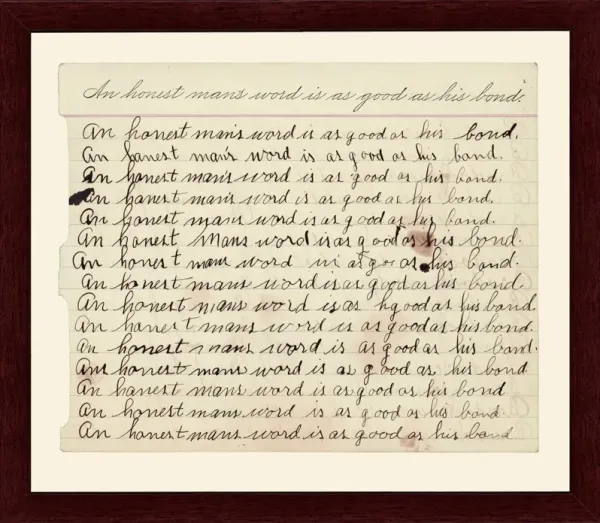 An honest mans word is as good as his bond."
An honest man's word is as good as his bond.
An honest man's word is as good as his bond.
An honest man's word is as good as his bond.
An honest man's word is as good as his bond.
An honest mans word is as good as his bond.
An honest Mans word is as good as his bond.
An honest mans word is as go as his bond.
An honest mans word is as good as his bond.
An honest mans word is as hgood as his bond.
An honest mans word is as good as his bond.
An honest mans word is as good as his bond.
An honest mans word is as good as his bond
An honest mans word is as good as his bond
An honest mans word is as good as his bond.
An honest mans word is as good as his bond